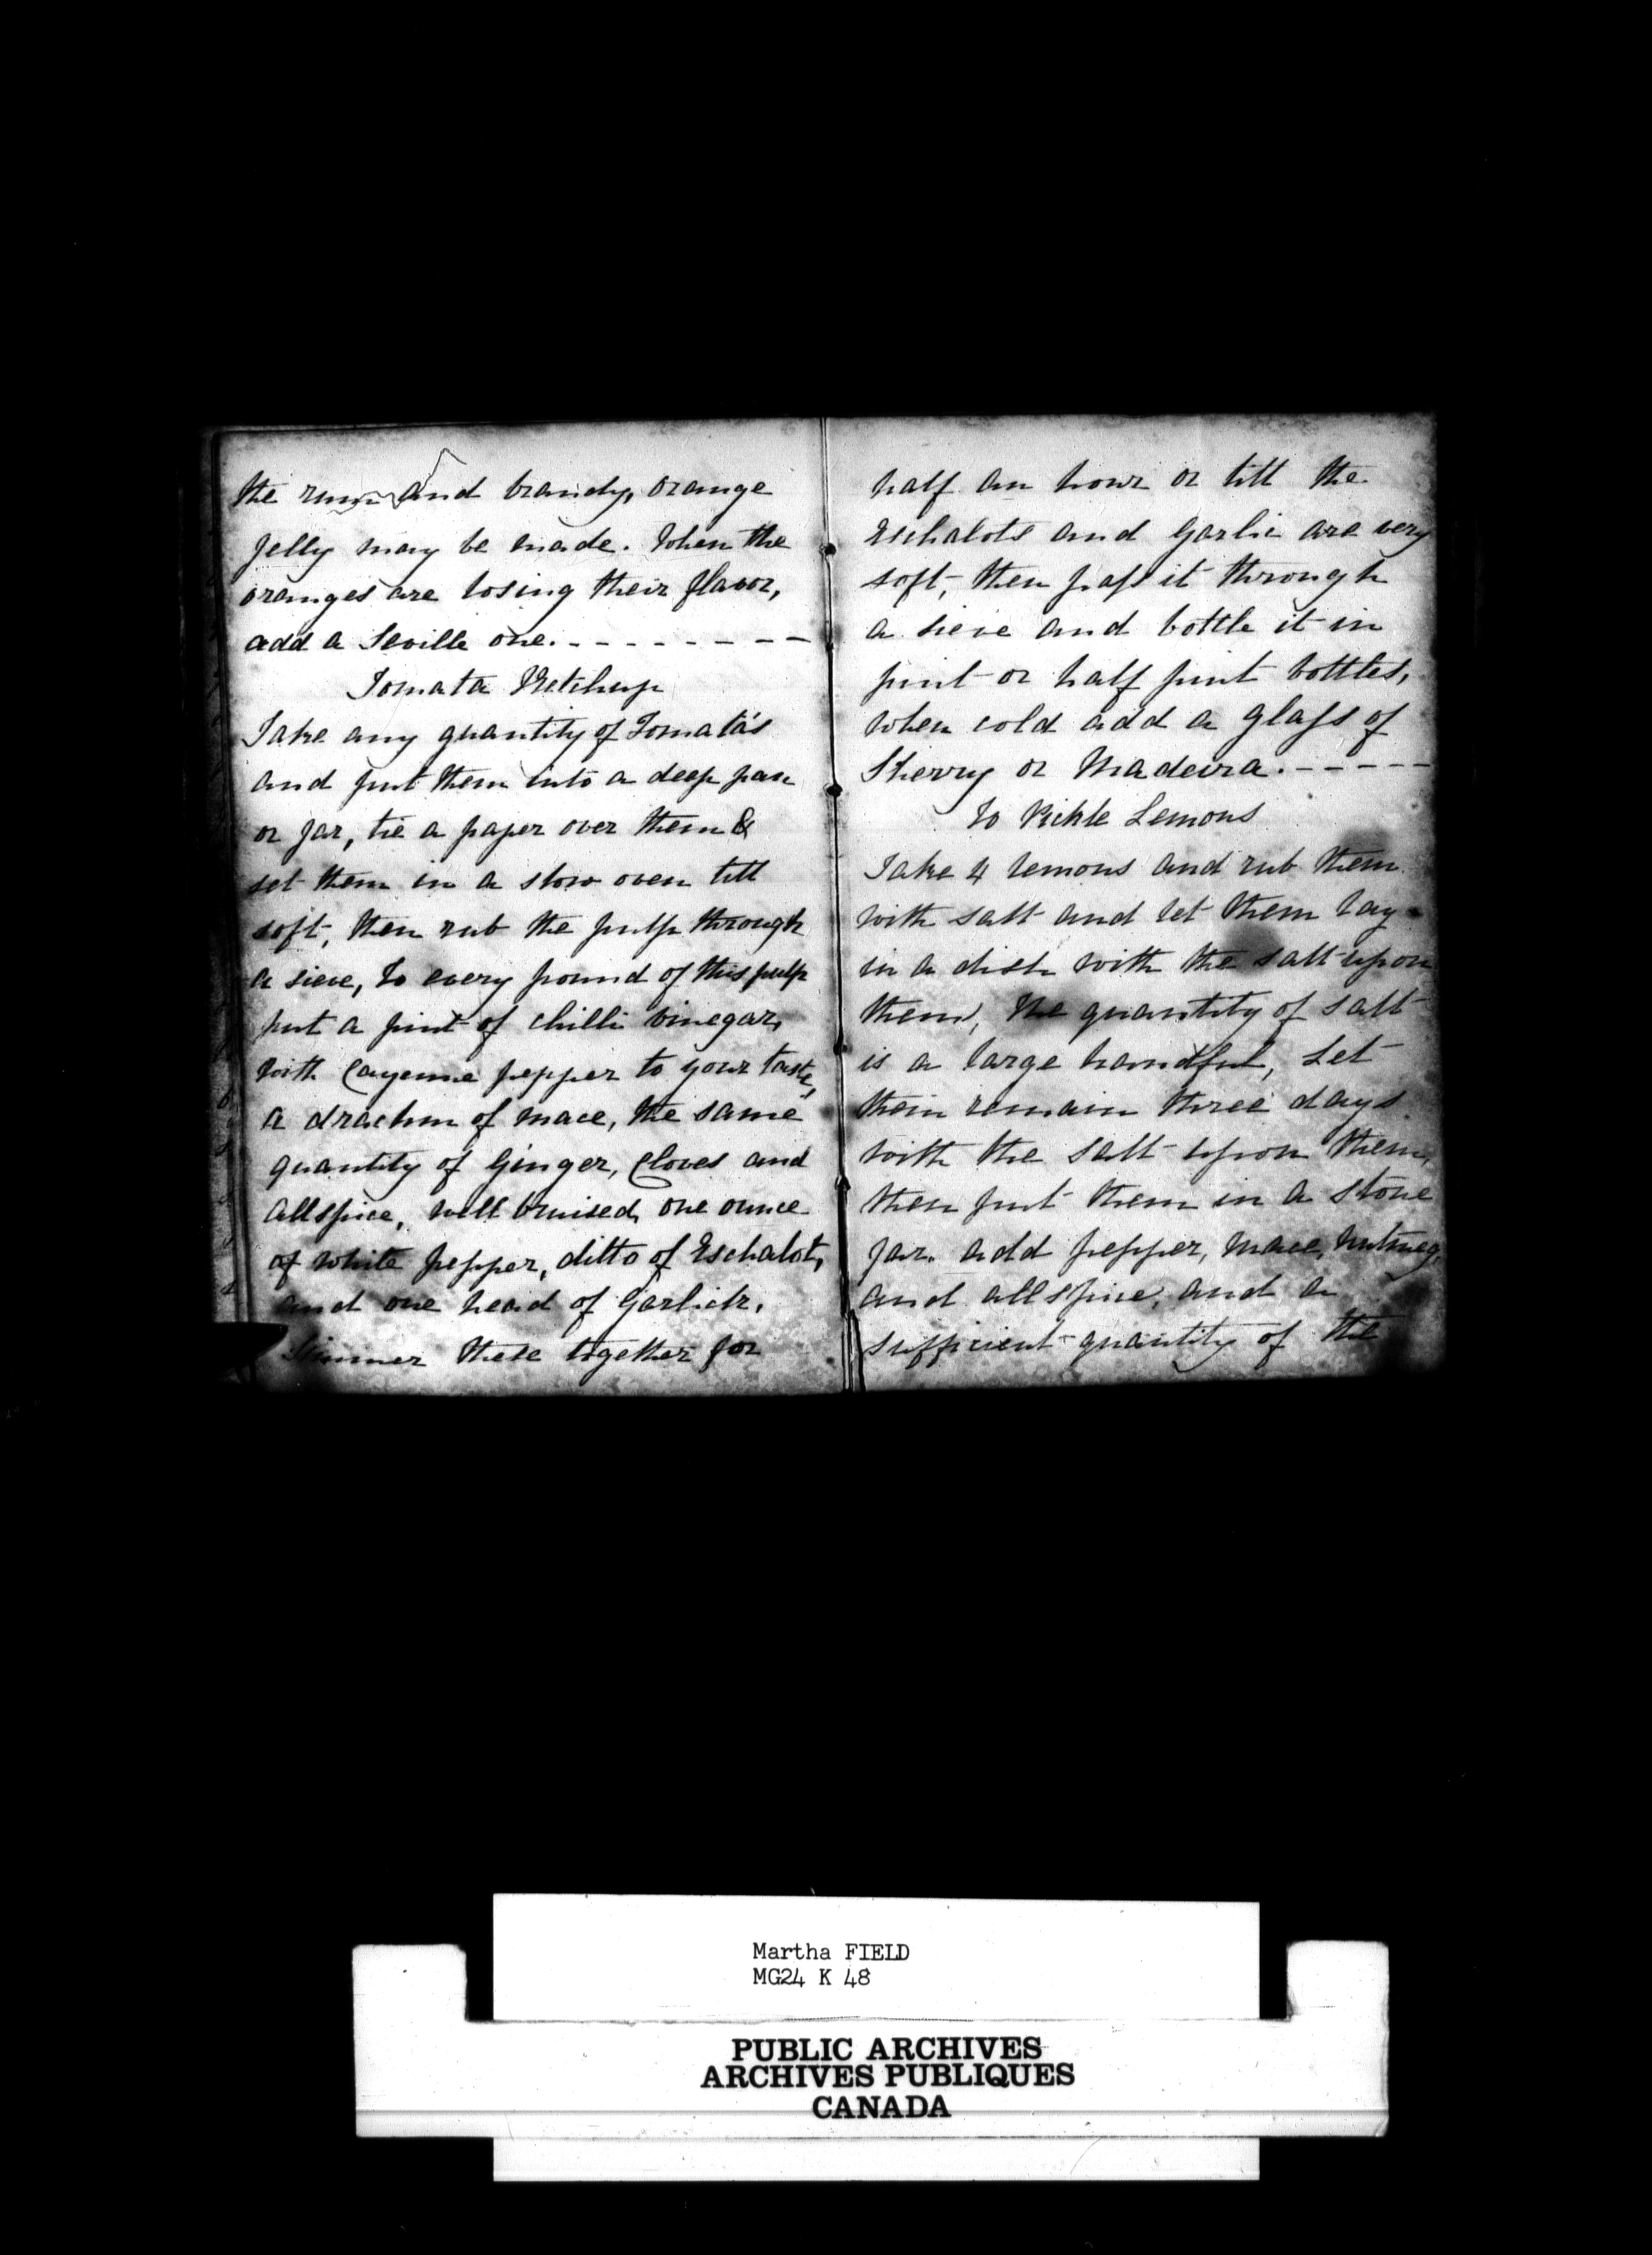 the rum and brandy, orange
jelly may be made. When the
oranges are losing their flavor,
add a Seville one. - - - - - - - -
Tomata Ketchup
Take any quantity of Tomata's
and put them into a deep pan
or jar, tie a paper over them &
set them in a slow oven till
soft, then rub the pulp through
a sieve, to every pound of this pulp
put a pint of chilli vinegar,
with Cayenne pepper to your taste,
a drachm of mace, the same
quantity of Ginger, Cloves and
allspice, well bruised, one ounce
of white pepper, ditto of Eschalot,
and one head of Garlick.
Simmer these together for
half an hour or till the
Eschalots and Garlic are very
soft, then paſs it through
a sieve and bottle it in
pint or half pint bottles,
when cold add a glaſs of
Sherry or Madeira. - - - - -
To Pickle Lemons
Take 4 lemons and rub them
with salt and let them lay
in a dish with the salt upon
them, the quantity of salt
is a large handful, Let
them remain three days
with the salt upon them,
then put them in a stone
jar. add pepper, mace, nutmeg,
and allspice, and a
sufficient quantity of the
Martha FIELD
MG24 K 48
PUBLIC ARCHIVES
ARCHIVES PUBLIQUES
CANADA